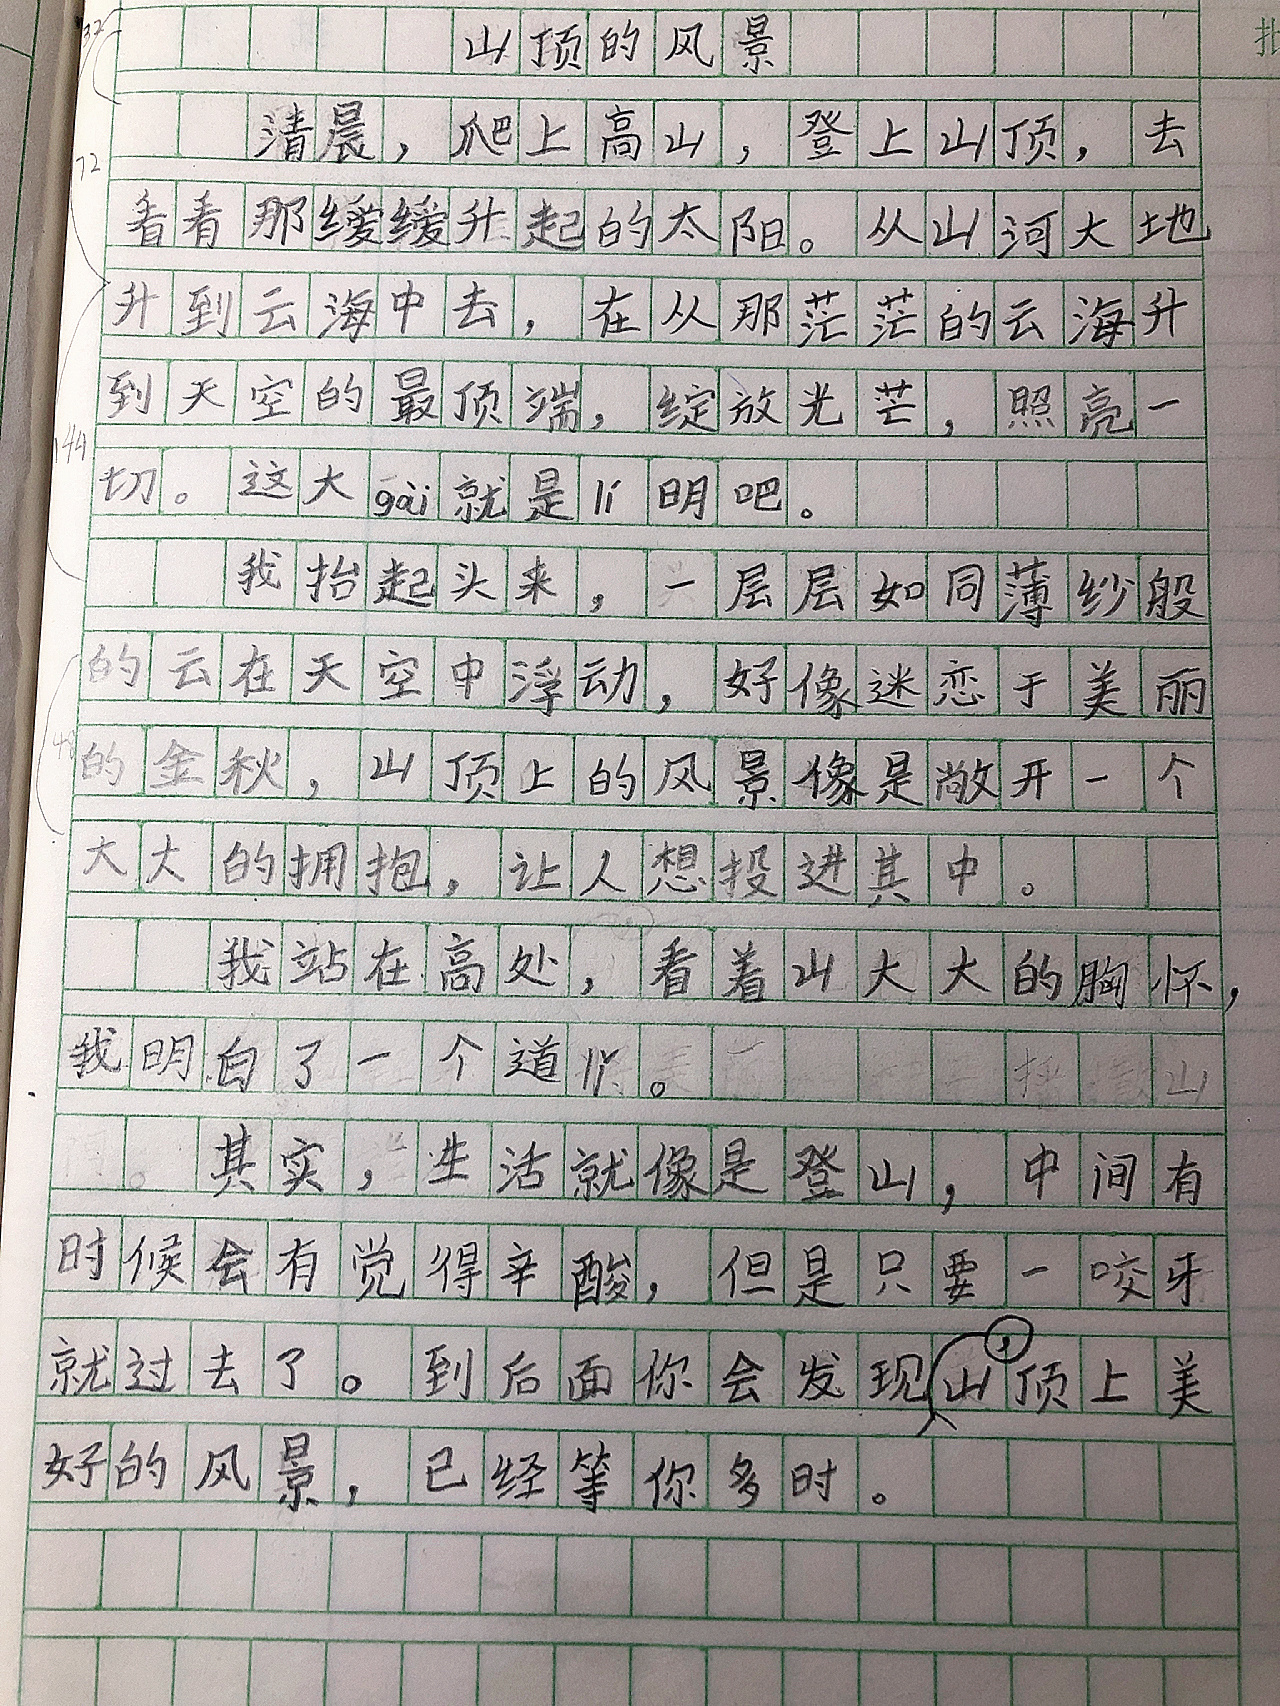 山顶的风景
清晨，爬上高山，登上山顶，去
看看那缓缓升起的太阳。从山河大地
升到云海中去，在从那茫茫的云海升
到天空的最顶端，绽放光芒，照亮一
切。这大gài就是lí明吧。
我抬起头来，一层层如同薄纱般
的云在天空中浮动，好像迷恋于美丽
的金秋，山顶上的风景像是敞开一个
大大的拥抱，让人想投进其中。
我站在高处，看着山大大的胸怀，
我明白了一个道lǐ。
其实，生活就像是登山，中间有
时候会有觉得辛酸，但是只要一咬牙
就过去了。到后面你会发现，山顶上美
好的风景，已经等你多时。
32
72
144
48